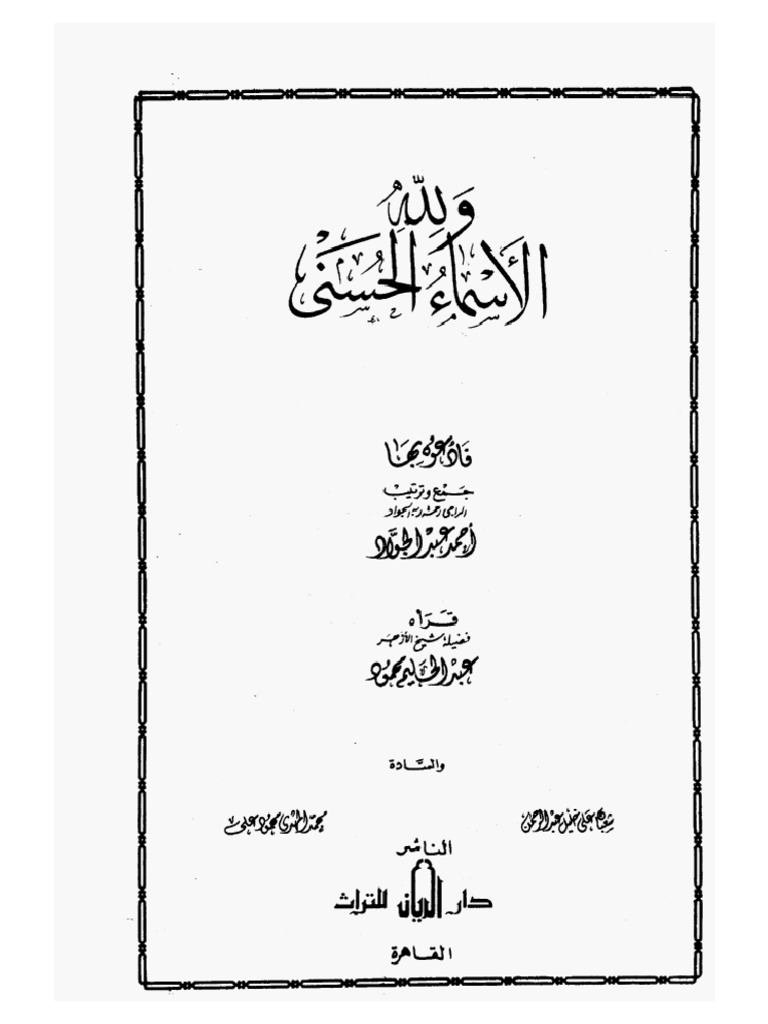 وَلِلَّهِ
الأَسْمَاءُ الحُسْنَى
فَادْعُوهُ بِهَا
جَمْع وترتيب
الراجى رحمة ربه الجواد
أحمد عبد الجوَّاد
قرأه
فضيلة شيخ الأزهر
عبد الحليم محمود
والسَّادة
شعبان على خليل عبد الرحمن
محمّد المهدى محمود على
الناشر
دار الريان للتراث
القاهرة